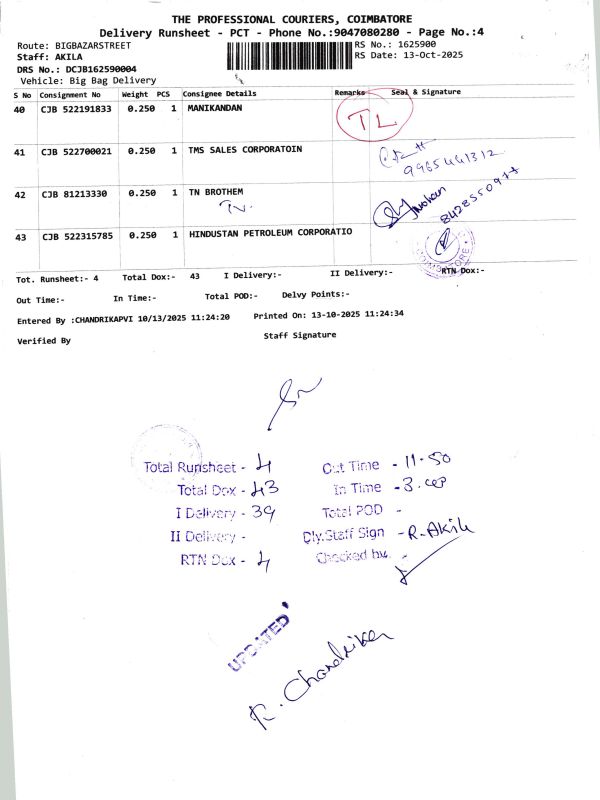 THE PROFESSIONAL COURIERS, COIMBATORE
Delivery Runsheet - PCT - Phone No.:9047080280 - Page No.:4
Route: BIGBAZARSTREET
RS No.: 1625900
Staff: AKILA
RS Date: 13-Oct-2025
DRS No.: DCJB162590004
Vehicle: Big Bag Delivery
S No Consignment No Weight PCS Consignee Details Remarks Seal & Signature
40 CJB 522191833 0.250 1 MANIKANDAN TL
41 CJB 522700021 0.250 1 TMS SALES CORPORATOIN
9965441312
42 CJB 81213330 0.250 1 TN BROTHEM
43 CJB 522315785 0.250 1 HINDUSTAN PETROLEUM CORPORATIO
COIMBATORE
Tot. Runsheet:- 4 Total Dox:- 43 I Delivery:- II Delivery:- RTN Dox:-
Out Time:- In Time:- Total POD:- Delvy Points:-
Entered By :CHANDRIKAPVI 10/13/2025 11:24:20 Printed On: 13-10-2025 11:24:34
Verified By Staff Signature
Total Runsheet - 4 Out Time - 11-50
Total Dox - 43 In Time - 3.
I Delivery - 39 Total POD -
II Delivery - Dly.Staff Sign - R. Akila
RTN Dox - 4 Checked by. -
UPDATED
R. Chandrika